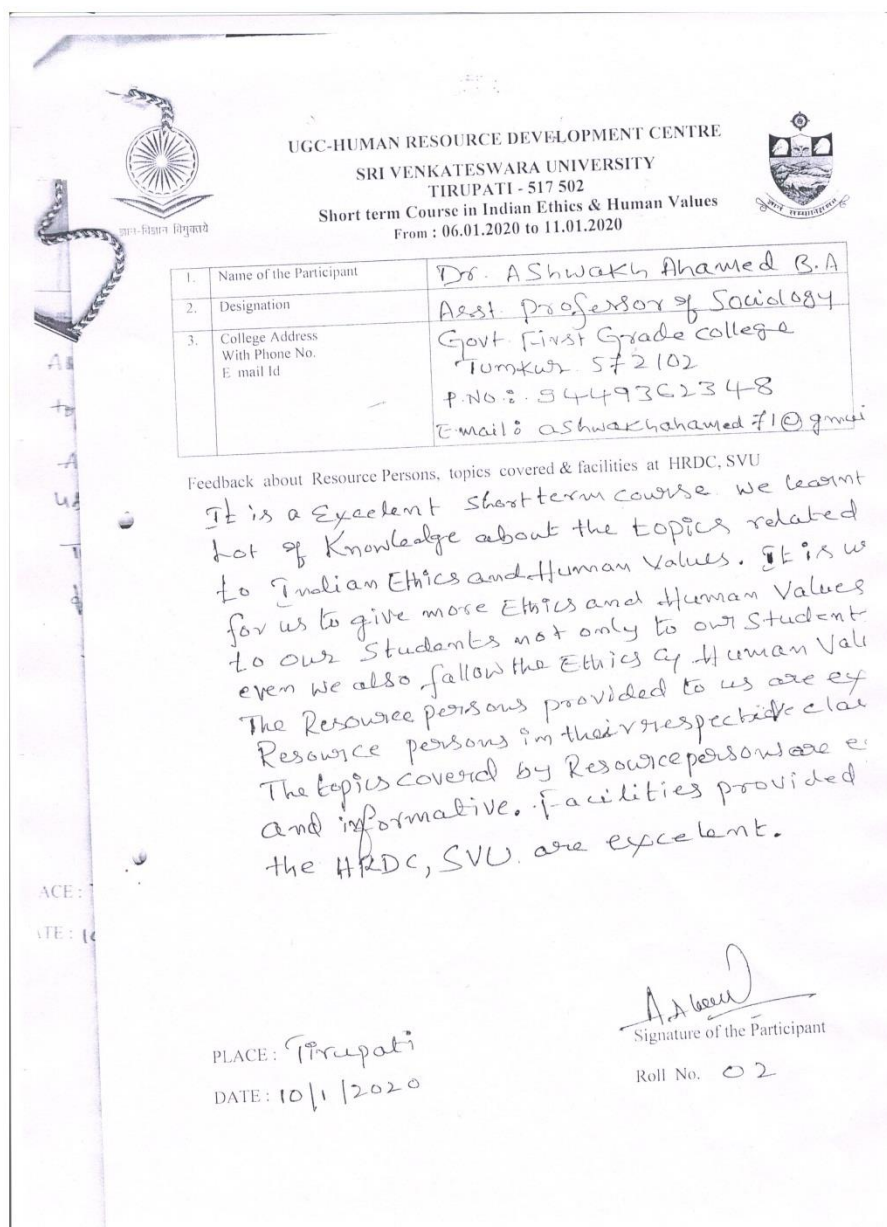 UGC-HUMAN RESOURCE DEVELOPMENT CENTRE
SRI VENKATESWARA UNIVERSITY
TIRUPATI - 517 502
Short term Course in Indian Ethics & Human Values
From : 06.01.2020 to 11.01.2020
ज्ञान-विज्ञान विमुक्तये
1. Name of the Participant Dr. AShwakh Ahamed B.A
2. Designation Asst. Professor of Sociology
3. College Address Govt First Grade college
With Phone No. Tumkur 572102
E mail Id P.No: 9449362348
E-mail: ashwakhahamed71@gmai
Feedback about Resource Persons, topics covered & facilities at HRDC, SVU
It is a Excelent Short term course we learnt
Lot of Knowledge about the topics related
to Indian Ethics and Human Values. It is us
for us to give more Ethics and Human Values
to our Students not only to our Student
even we also fallow the Ethics of Human Val
The Resource persons provided to us are ex
Resource persons in their respective clas
The topics coverd by Resource persons are e
and informative. Facilities provided
the HRDC, SVU are excelent.
ACE :
ATE : 10
Signature of the Participant
PLACE : Tirupati
Roll No. 02
DATE : 10/1/2020